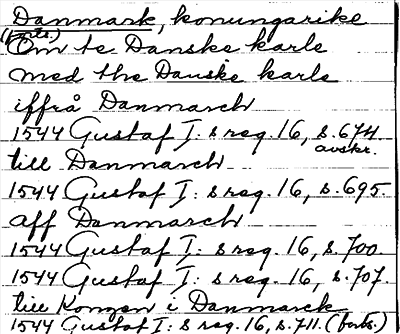 Danmark, konungarike
(forts.)
Om te Danske karle
med the Danske karls
iffrå Danmarch
1544 Gustaf I: s reg. 16, s. 674
avskr.
till Danmarch
1544 Gustaf I: s reg. 16, s. 695.
aff Danmarch
1544 Gustaf I: s reg. 16, s. 700
1544 Gustaf I: s reg. 16, s. 707.
till Kongen i Danmarck
1544 Gustaf I: s reg. 16, s. 711. (forts.)